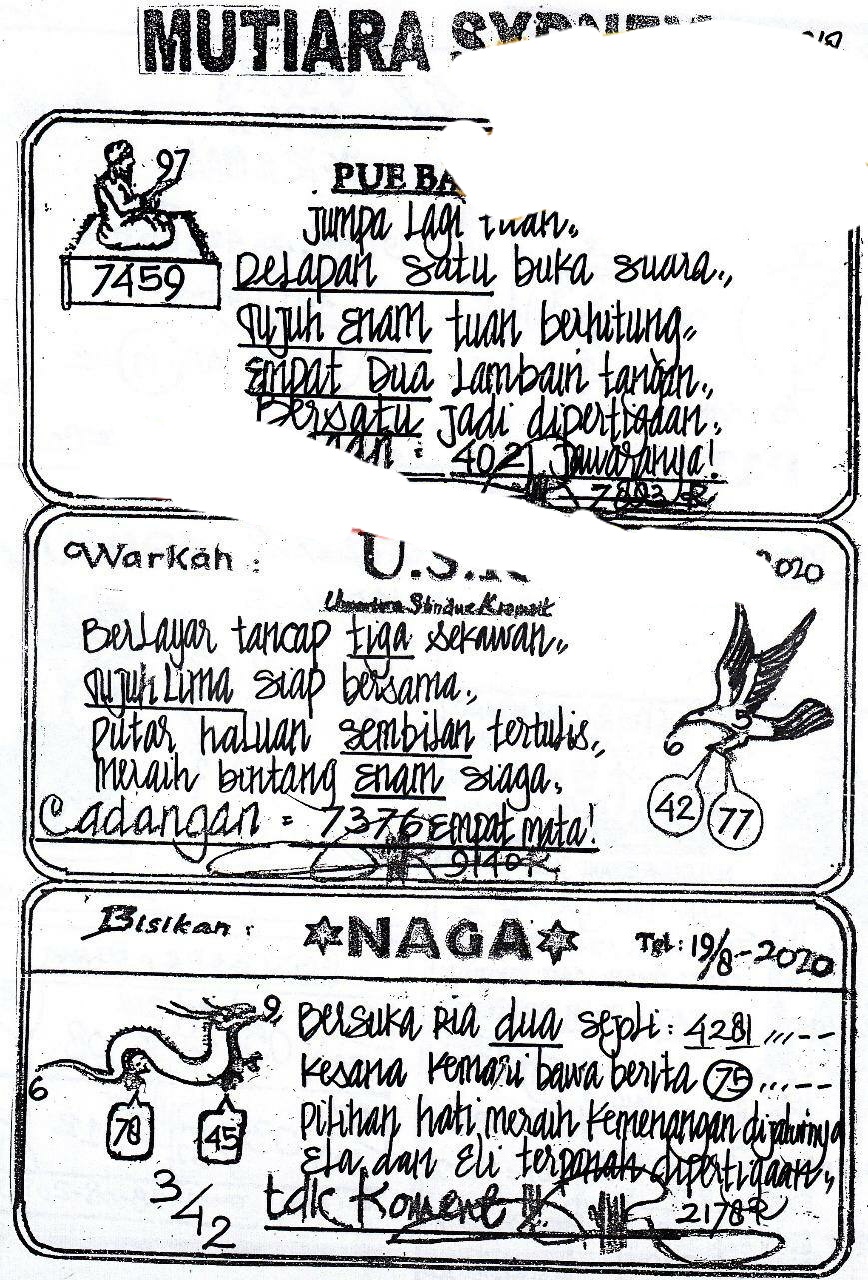 MUTIARA SYDNEY
97
7459
PUE BA
Jumpa Lagi tuan..
Delapan satu buka suara..,
Tujuh Enam tuan berhitung..
Empat Dua Lambain tangan..,
Bersatu jadi dipertigaan..
4021 Jawaranya!
Warkah : U.S. 2020
Berlayar tancap tiga sekawan..
Tujuh Lima siap bersama..,
putar haluan sembilan tertulis..,
meraih bintang enam siaga..
Cadangan = 7376 Empat mata!
9140R
5
6
42 77
Bisikan : NAGA Tgl : 19/8-2020
Bersuka Ria dua sejoli : 4281 ,,,--
kesana kemari bawa berita 75 ,,,--
pilihan hati meraih kemenangan dijalurinya
Ela dan Eli terpanah dipertigaan..
tdk Koment !!
2178R
9
6
78 45
3/42